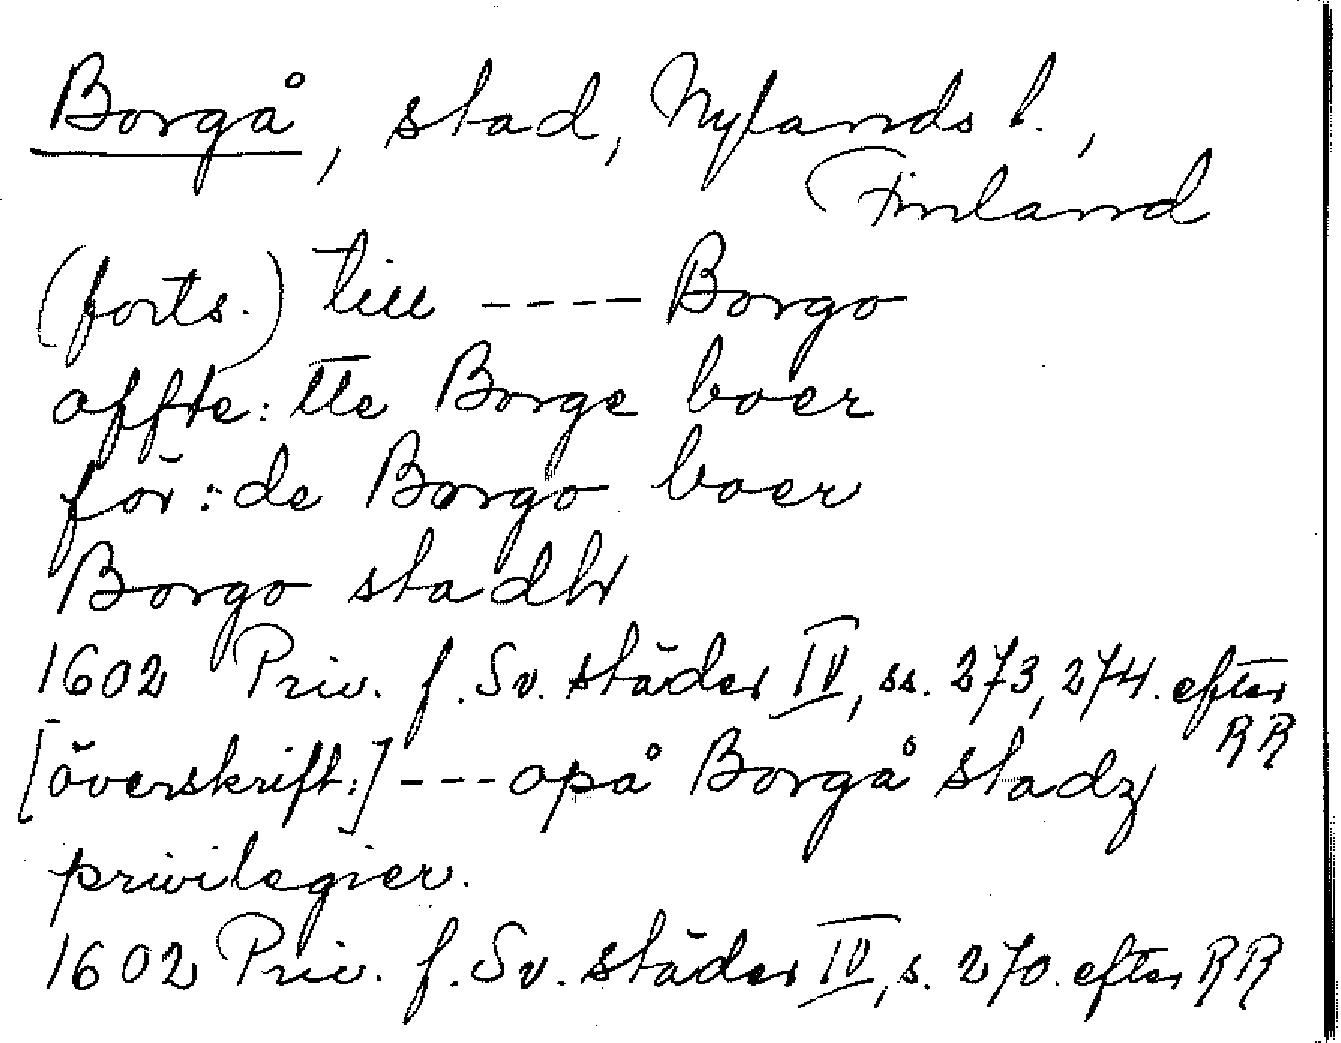 Borgå, stad, Nylands l.,
Finland
(forts.) till ---- Borgo
affte: tte Borge boer
för: de Borgo boer
Borgo stadh
1602 Priv. f. Sv. städer IV, ss. 273, 274. efter
RR
[överskrift:] --- opå Borgå stadz
privilegier.
1602 Priv. f. Sv. städer IV, s. 270. efter RR